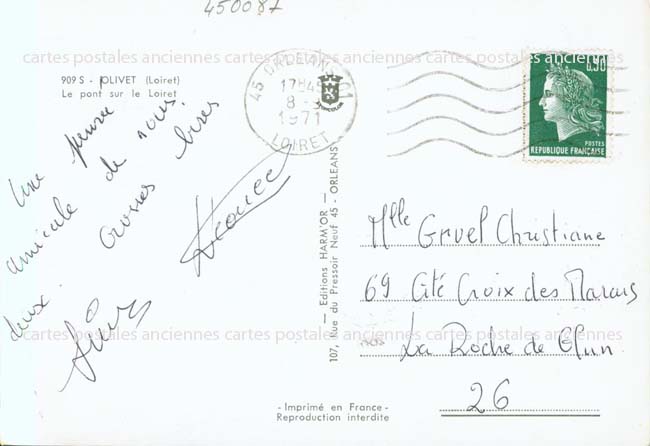 450087
cartes postales anciennes cartes postales anciennes cartes postales anciennes
909 S - OLIVET (Loiret)
Le pont sur le Loiret
45 ORLEANS
17H45
8 -
1971
LOIRET
0,30
POSTES
REPUBLIQUE FRANÇAISE
Une pensée
amicale de nous
deux. Grosses bises
— Editions HARM'OR —
107, Rue du Pressoir Neuf 45 - ORLEANS
Mlle Gruel Christiane
69 Cité Croix des Marais
La Roche de Glun
26
cartes postales anciennes cartes postales anciennes cartes postales anciennes
- Imprimé en France -
Reproduction interdite